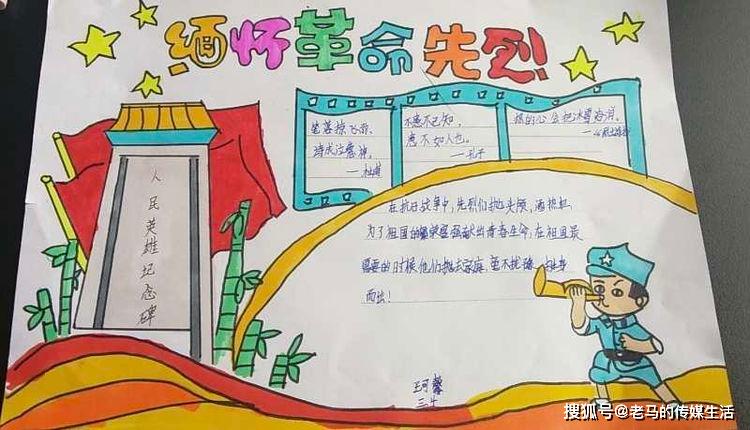 缅怀革命先烈
笔落惊飞雨,
诗成泣鬼神。
——杜甫
不患不己知,
患不如人也。
——孔子
的心会把冰雪消
人民英雄纪念碑
在抗日战争中,先烈们抛头颅,洒热血
为了祖国的 献出青春生命,在祖国最
需要的时候他们抛去家庭,毫不犹豫,挺身
而出!
三
搜狐号@老马的传媒生活